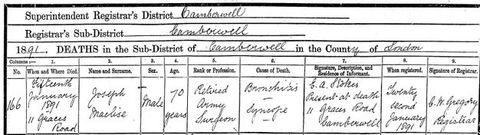 Superintendent Registrar's District Camberwell
Registrar's Sub-District Camberwell
1891. DEATHS in the Sub-District of Camberwell in the County of London
Columns:— 1. 2. 3. 4. 5. 6. 7. 8. 9.
No. When and Where Died. Name and Surname. Sex. Age. Rank or Profession. Cause of Death. Signature, Description, and Residence of Informant. When registered. Signature of Registrar.
166 Fifteenth January 1891 11 Graces Road
Joseph Maclise
Male
70 years
Retired Army Surgeon
Bronchitis Syncope
E. A. Stokes Present at death 11 Graces Road Camberwell
Twenty second January 1891
C. W. Gregory Registrar